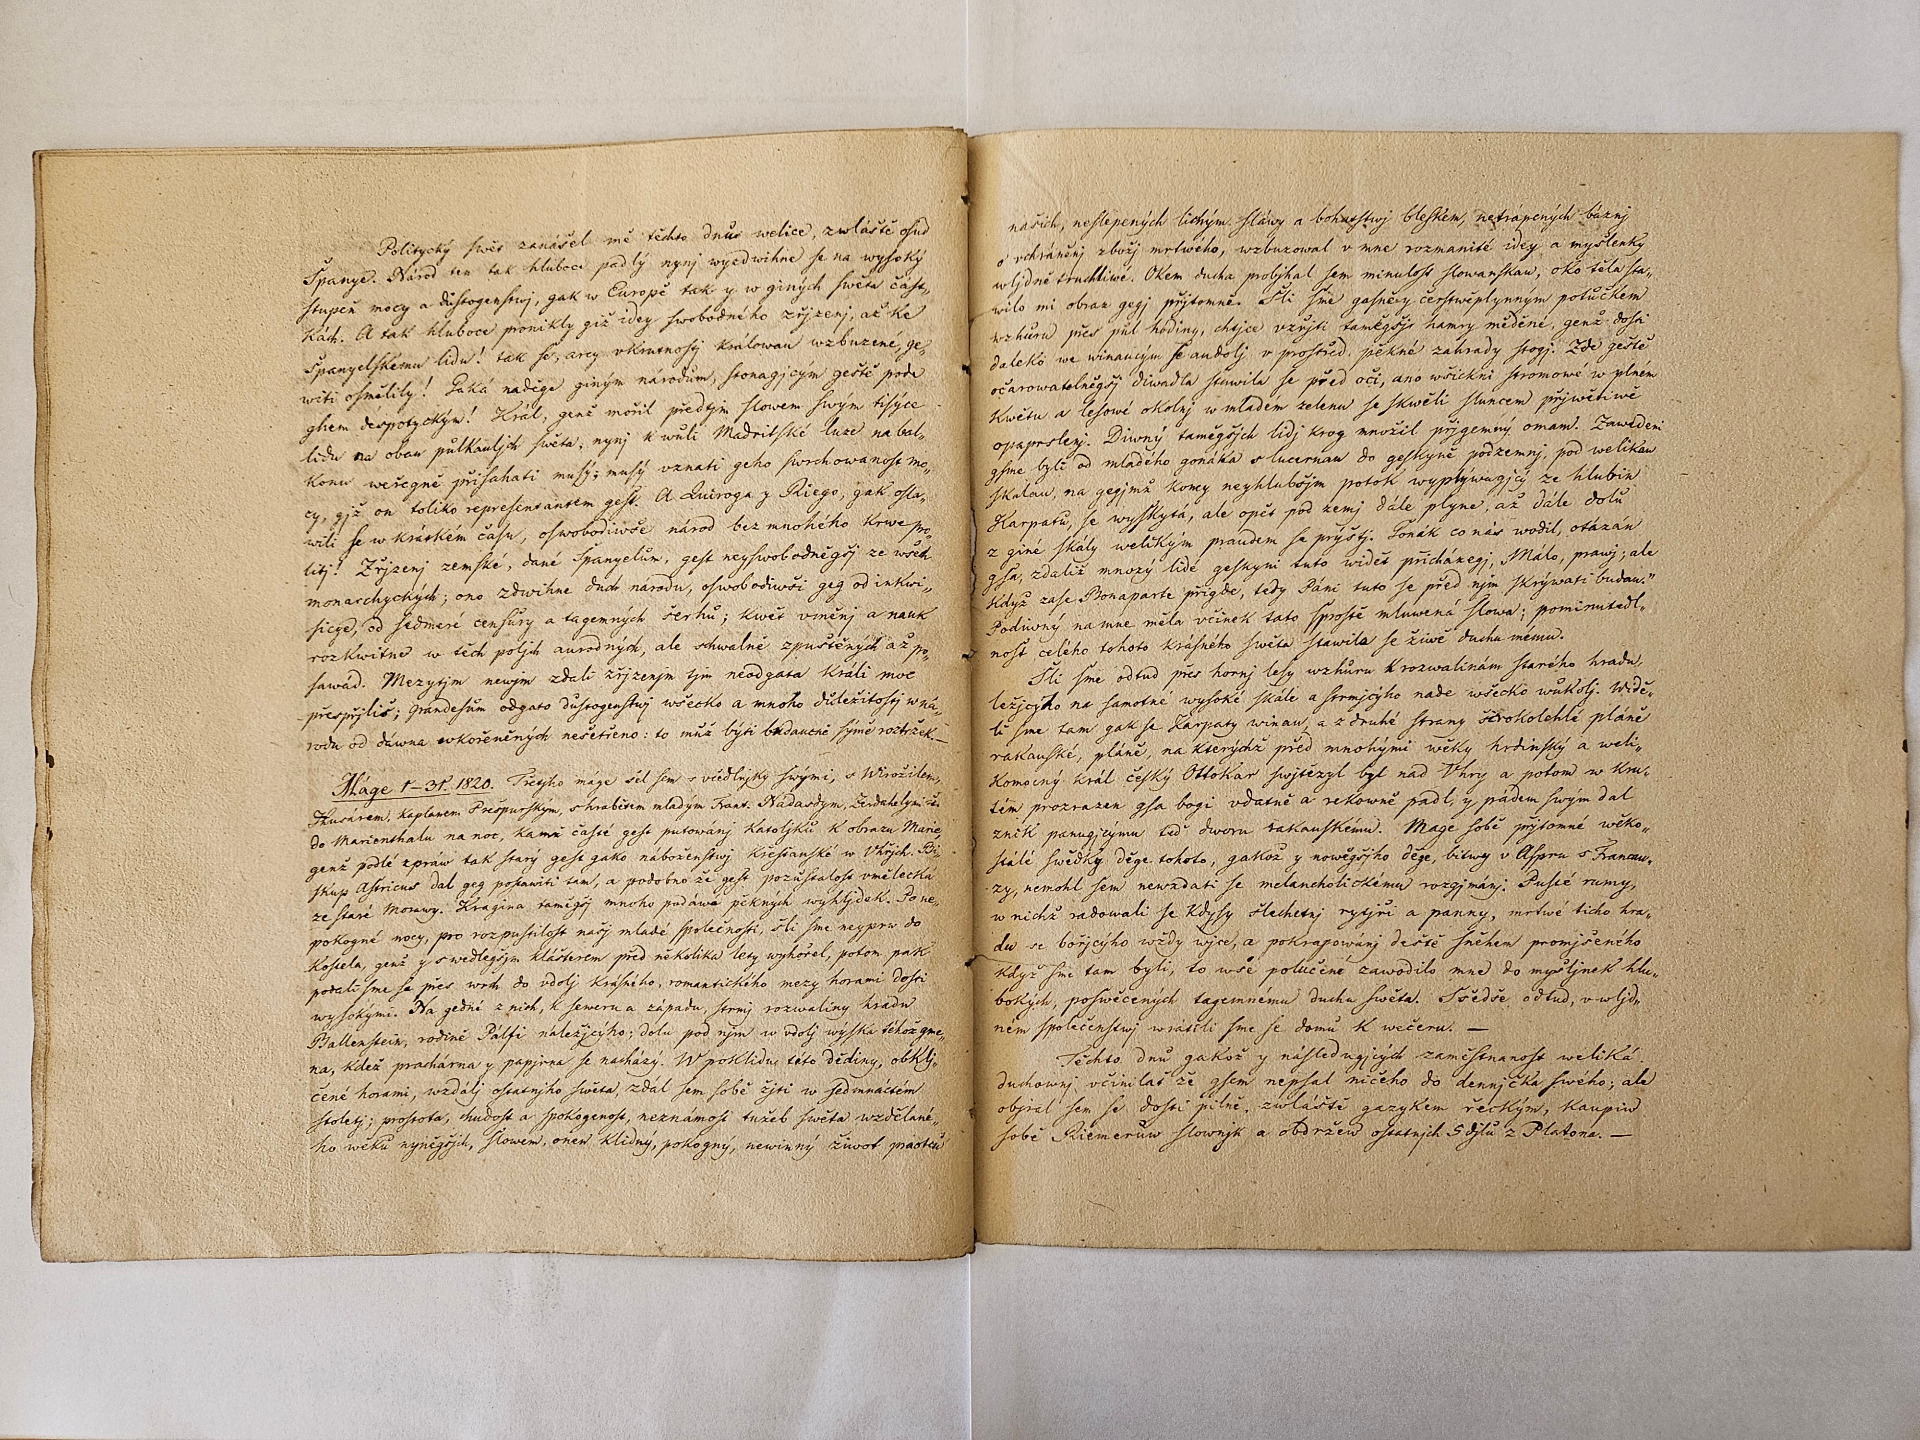 Politycký swět zanášel mě těchto dnůw welice, zwláště osud
Španyel. Národ ten tak hluboce padlý nynj wyzdwihne se na wysoký
stupeň mocy a důstogenstwj, gak w Europě tak y w giných swěta část„
kách. A tak hluboce pronikly giž idey swobodného zřjzenj, až ke
španyelskému lidu! tak se, arcy vkrutnostj králowau wzbuzené, ge„
witi osmělily! Jaká naděge giným národům, stonagjcým geště pode
ghem despotyckým! Král, genž mořil předtjm slowem swým tisýce
lidu na obau půlkauljch swěta, nynj k wůli Madritské luze na bal„
konu weřegně přisahati musý; musý vznati geho swrchowanost mo„
cy, gjž on toliko representantem gest. A Quiroga y Riego, gak osla„
wili se w krátkém času, oswobodiwše národ bez mnohého krwe pro„
litj! Zřjzenj zemské, dané Španyelům, gest neyswobodněgšj ze wšech
monarchyckých; ono zdwihne duch národu, oswobodiwši geg od inkwi„
sicye, od sedmeré censůry a tagemných šerhů; kwět vměnj a nauk
rozkwitne w těch poljch aurodných, ale schwalně zpustěných až po„
sawád. Mezytjm newjm zdali zřjzenjm tjm neodgata králi moc
přespřjliš; Grandesům odgato důstogenstwj wšecko a mnoho důležitostj w ná„
rodu od dáwna wkořeněných nešetřeno: to můž býti budaucně sýmě roztržek—
Máge 1–31. 1820. Třetjho máge šel sem s včedlnjky swými, s Wirožilem,
Thusárem, kaplanem Prešpurským, s hrabětem mladým Frant. Nádasdym, Zerdahelym
do Marienthalu na noc, kamž časté gest putowánj Katoljků k obrazu Marie,
genž podlé zpráw tak starý gest gako náboženstwj křesťanské w Vhřjch. Bi„
skup Astricus dal geg postawiti tam, a podobno že gest pozůstalost vmělecká
ze staré Morawy. Kragina taměgšj mnoho podáwá pěkných wyhljdek. Po ne„
pokogné nocy, pro rozpustilost našj mladé společnosti, šli sme neyprw do
kostela, genž y s wedlegšjm klášterem před několika lety wyhořel, potom pak
podali sme se přes wrch do vdolj krásného, romantického mezy horami dosti
wysokými. Na gedné z nich, k seweru a západu, strmj rozwaliny hradu
Ballenstein, rodině Pálfi náležjcýho; dolu pod njm w vdolj wýska téhož gmé„
na, kdež prachárna y papjrna se nacházý. W poklidu této dědiny, obklj„
čené horami, wzdálj ostatnjho swěta, zdál sem sobě žjti w sedmnáctém
stoletj; prostota, chudost a spokogenost, neznámost tužeb swěta wzdělané„
ho wěku nyněgšjch, slowem, onen klidný, pokogný, newinný žiwot praotců
našich, neslepených lichým sláwy a bohatstwj bleskem, netrápených báznj
o vchráněnj zbožj mrtwého, wzbuzowal v mne rozmanité idey a myšlenky
wljdně truchliwé. Okem ducha probjhal sem minulost slowanskau, oko těla sta„
wilo mi obraz gegj přjtomně. Šli sme gasně y čerstwěplynným potůčkem
wzhůru přes půl hodiny, chtjce vzřjti taměgšjo hamry měděné, genž dosti
daleko we winaucým se audolj v prostřed pěkné záhrady stogj. Zde geště
očarowatelněgšj diwadla stawila se před oči, ano wšickni stromowé w plném
kwětu a lesowé okolnj w mladém zelenu se skwěli sluncem přjwětiwě
opaprsleny. Diwný taměgšjch lidj krog množil přjgemný omam. Zawedeni
gsme byli od mladého goňáka s lucernau do geskyně podzemnj, pod welikau
skálau, na gegjmž koncy neyhlubšjm potok wyplýwagjcý ze hlubin
Karpatů, se wyskytá, ale opět pod zemj dále plyne, až dále dolů
z giné skály welikým praudem se prýštj. Goňák co nás wodil, otázán
gsa, zdaliž mnozý lidé geskyni tuto widět přicházegj, „Málo, prawj; ale
když zase Bonaparte přigde, tedy Páni tuto se před njm skrýwati budau.“
Podiwný na mne měla včinek tato sprostě mluwená slowa; pominutedl„
nost celého tohoto krásného swěta stawila se žiwě duchu mému.
Šli sme odtud přes hornj lesy wzhůru k rozwalinám starého hradu,
ležjcýho na samotné wysoké skále a strmjcýho nade wšecko wůkolj. Widě„
li sme tam gak se Karpaty winau, a z druhé strany široko lehlé pláně
rakauské, pláně, na kterýchž před mnohými wěky hrdinský a weli„
komocný král český Ottokar swjtězyl byl nad Vhry a potom w kru„
tém prozrazen gsa bogi vdatně a rekowně padl, y pádem swým dal
znik panugjcýmu teď dworu rakauskému. Mage sobě přjtomné wěko„
stálé swědky děge tohoto, gakož y nowěgšjho děge, bitwy v Aspru s Francau„
zy, nemohl sem newzdati se melancholickému rozgjmánj. Pusté rumy,
w nichž radowali se kdysy šlechetnj rytjři a panny, mrtwé ticho hra„
du se bořjcýho wždy wjce, a pokrapowánj deště sněhem promjšeného
když sme tam byli, to wše polučené zawodilo mne do myšljnek hlu„
bokých, poswěcených tagemnému duchu swěta. Sšedše odtud, v wljd„
ném společenstwj wrátili sme se domů k wečeru. —
Těchto dnů gakož y následugjcých zaměstnanost weliká
duchownj včinilas že gsem nepsal ničeho do dennjčka swého; ale
objral sem se dosti pilně, zwláště gazykem řeckým, kaupiw
sobě Riemerůw slownjk a obdržew ostatnjch 5 djlů z Platona. —